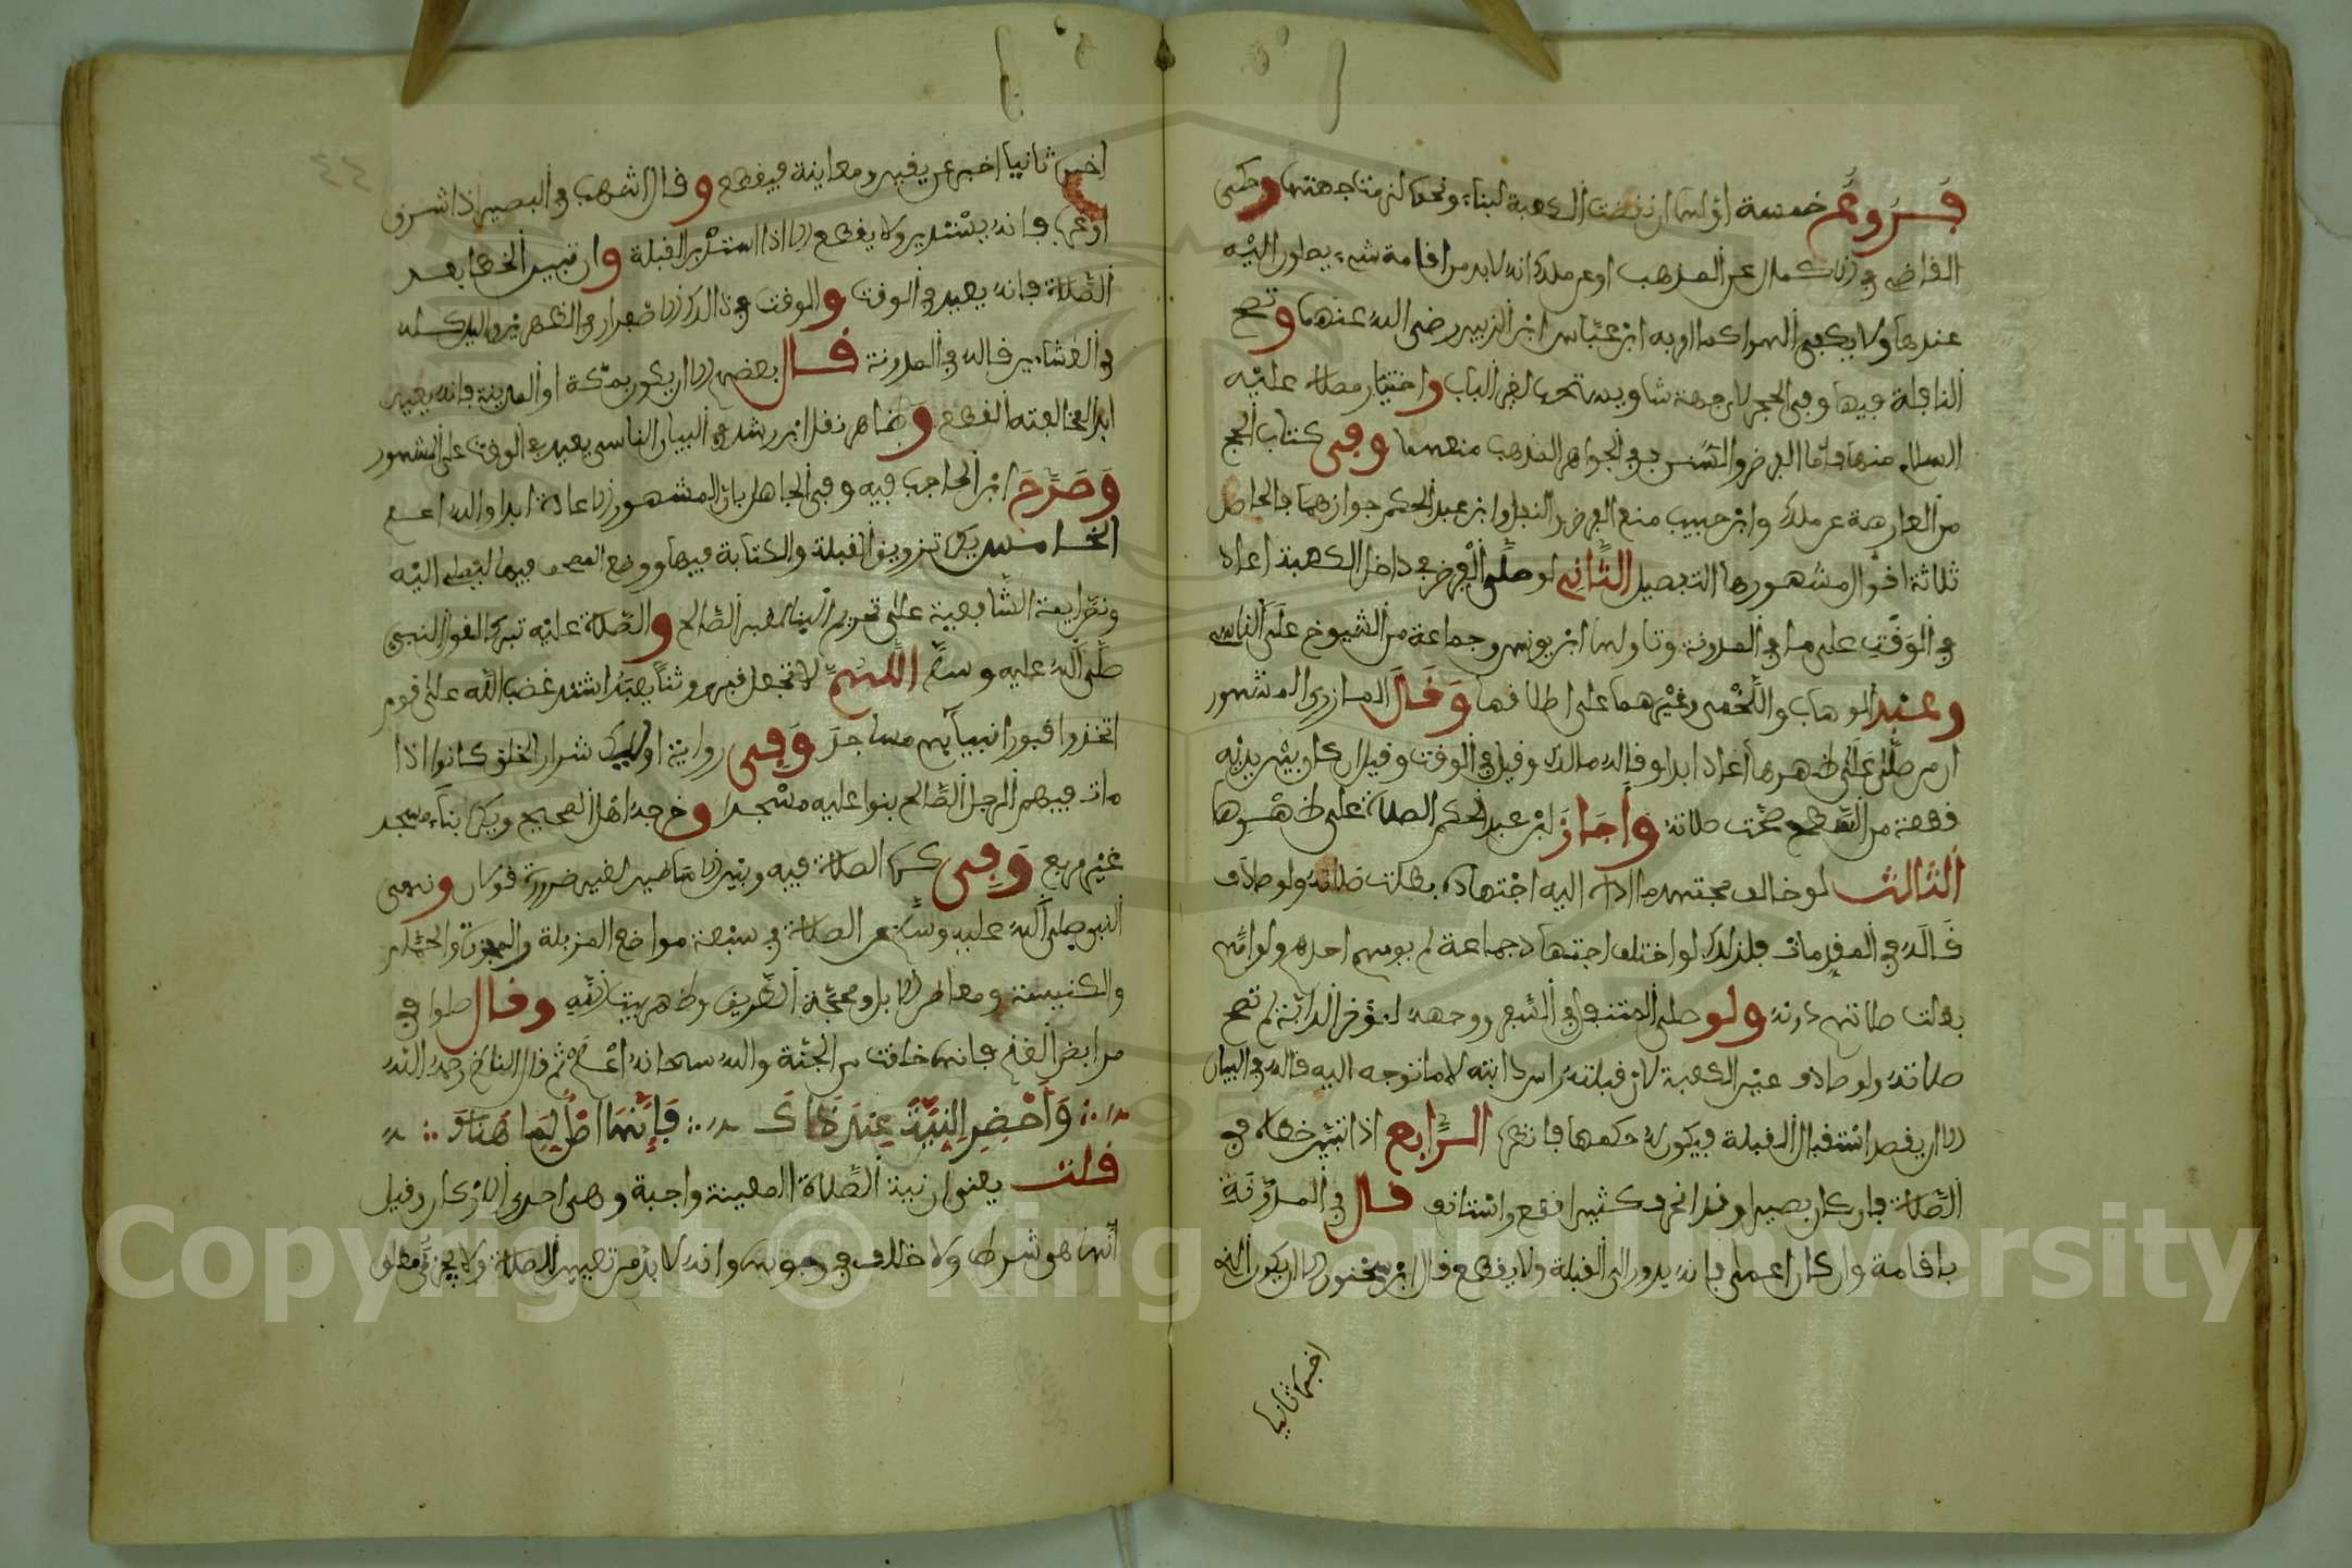 فروع خمسة اولها ان نقضت الكعبة لبناء ونحوه لزمتنا جهتها وحكى
القاضي في الاكمال عن المذهب او عن ملك انه لابد من اقامة شيء يطول اليه
عندها ولا يكفي الهوا كما امر به ابن عباس ابن الزبير رضي الله عنهما وتصح
النافلة فيها وفي الحجر لاي جهة شا ويستحب لغير الباب واختيار مصلاه عليه
السلام منها فاما الفرض والسنن ففي الجواهر المذهب منعهما وفي كتاب الحج
من المعارضة عن ملك وابن حبيب منع الفرض والنفل وابن عبد الحكم جوازهما فالحاصل
ثلاثة اقوال مشهورها التفصيل الثاني لو صلى الفرض في داخل الكعبة اعاد
في الوقت على ما في المدونة وتاولها ابن يونس وجماعة من الشيوخ على الناسي
وعبد الوهاب واللخمي وغيرهما على اطلاقها وقال المازري المشهور
ان من صلى على ظهرها اعاد ابدا وقاله مالك وقيل في الوقت وقيل ان كان بين يديه
قطعة من السطح صحت صلاته واجاز ابن عبد الحكم الصلاة على ظهرها
الثالث لو خالف مجتهد ما اداه اليه اجتهاده بطلت صلاته ولو صادف
قاله في المقدمات فلذلك لو اختلف اجتهاد جماعة لم يومهم احدهم ولو امهم
بطلت صلاتهم دونه ولو صلى المتنفل في السفر ووجهه لمؤخر الدابة لم تصح
صلاته ولو صادف عين الكعبة لان قبلته راس دابته لا ما توجه اليه قاله في البيان
الا ان يقصد استقبال القبلة فيكون له حكمها فانظره الرابع اذا تبين خطاه في
الصلاة فان كان بصيرا وقد انحرف كثيرا قطع واستانف قال في المدونة
باقامة وان كان اعمى فانه يدور الى القبلة ولا يقطع قال ابن سحنون الا ان يكون الذي
اخبره ثانيا
اخبره ثانيا اخبر عن يقين ومعاينة فيقطع وقال اشهب في البصير اذا شرق
او غرب فانه يستدير ولا يقطع الا اذا استدبر القبلة وان تبين الخطا بعد
الصلاة فانه يعيد في الوقت والوقت في ذلك الاصفرار في الظهرين والليل كله
في العشاءين قاله في المدونة قال بعضهم الا ان يكون بمكة او المدينة فانه يعيد
ابدا لمخالفته القطع وظاهر نقل ابن رشد في البيان الناسي يعيد في الوقت على المشهور
وصرح ابن الحاجب فيه وفي الجاهل بان المشهور الاعادة ابدا والله اعلم
الخامس يكره تزويق القبلة والكتابة فيها ووضع المصحف فيها ليصلى اليه
ونص ايمة الشافعية على تحريم استقبال قبر الصالح والصلاة عليه تبركا لقول النبي
صلى الله عليه وسلم اللهم لا تجعل قبري وثنا يعبد اشتد غضب الله على قوم
اتخذوا قبور انبيايهم مساجد وفي رواية اوليك شرار الخلق كانوا اذا
مات فيهم الرجل الصالح بنوا عليه مسجدا وخرجه اهل الصحيح ويكره بناء مسجد
غير مربع وفي كره الصلاة فيه وبين الاساطين لغير ضرورة قولان ونهى
النبي صلى الله عليه وسلم عن الصلاة في سبعة مواضع المزبلة والمجزرة والحمام
والكنيسة ومعاطن الابل ومحجة الطريق وظهر بيت الله وقال صلوا في
مرابض الغنم فانها خلقت من الجنة والله سبحانه اعلم ثم قال الناظم رحمه الله
وَأحْضِرِ النِيَّةَ عِندَ ذَاكَ فَإِنَّهَا أصْلٌ لِمَا هُنَاكَ
قلت يعني ان نية الصلاة المعينة واجبة وهي احدى الاركان وقيل
انها هو شرط ولا خلاف في وجوبها وانه لا بد من تعيين الصلاة ولا يجزئ مطلق